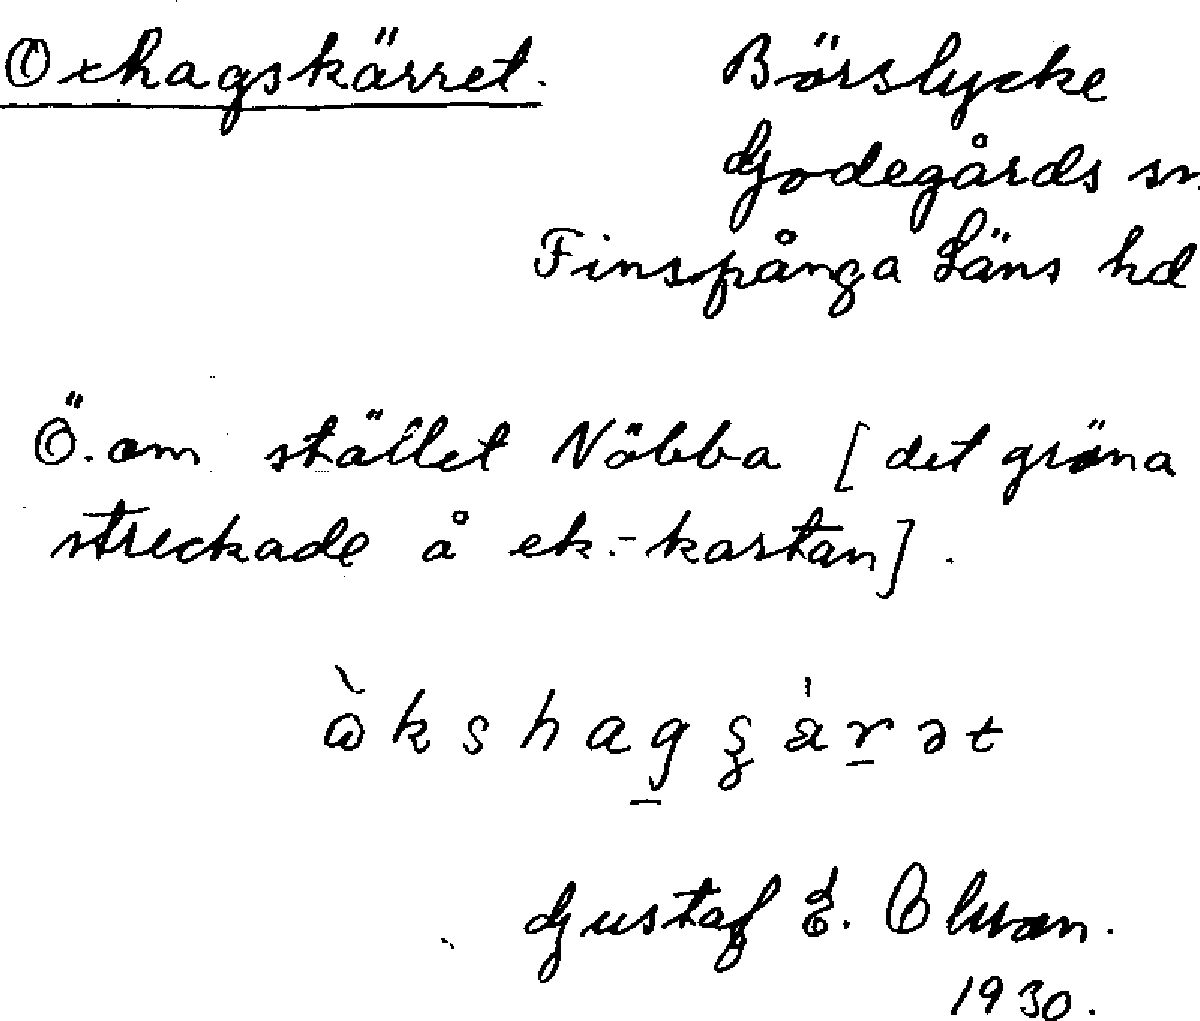 Oxhagskärret. Börslycke
Godegårds sn.
Finspånga Läns hd
Ö. om stället Nöbba [det gröna
streckade å ek.-kartan].
Gustaf E. Olsson.
1930.